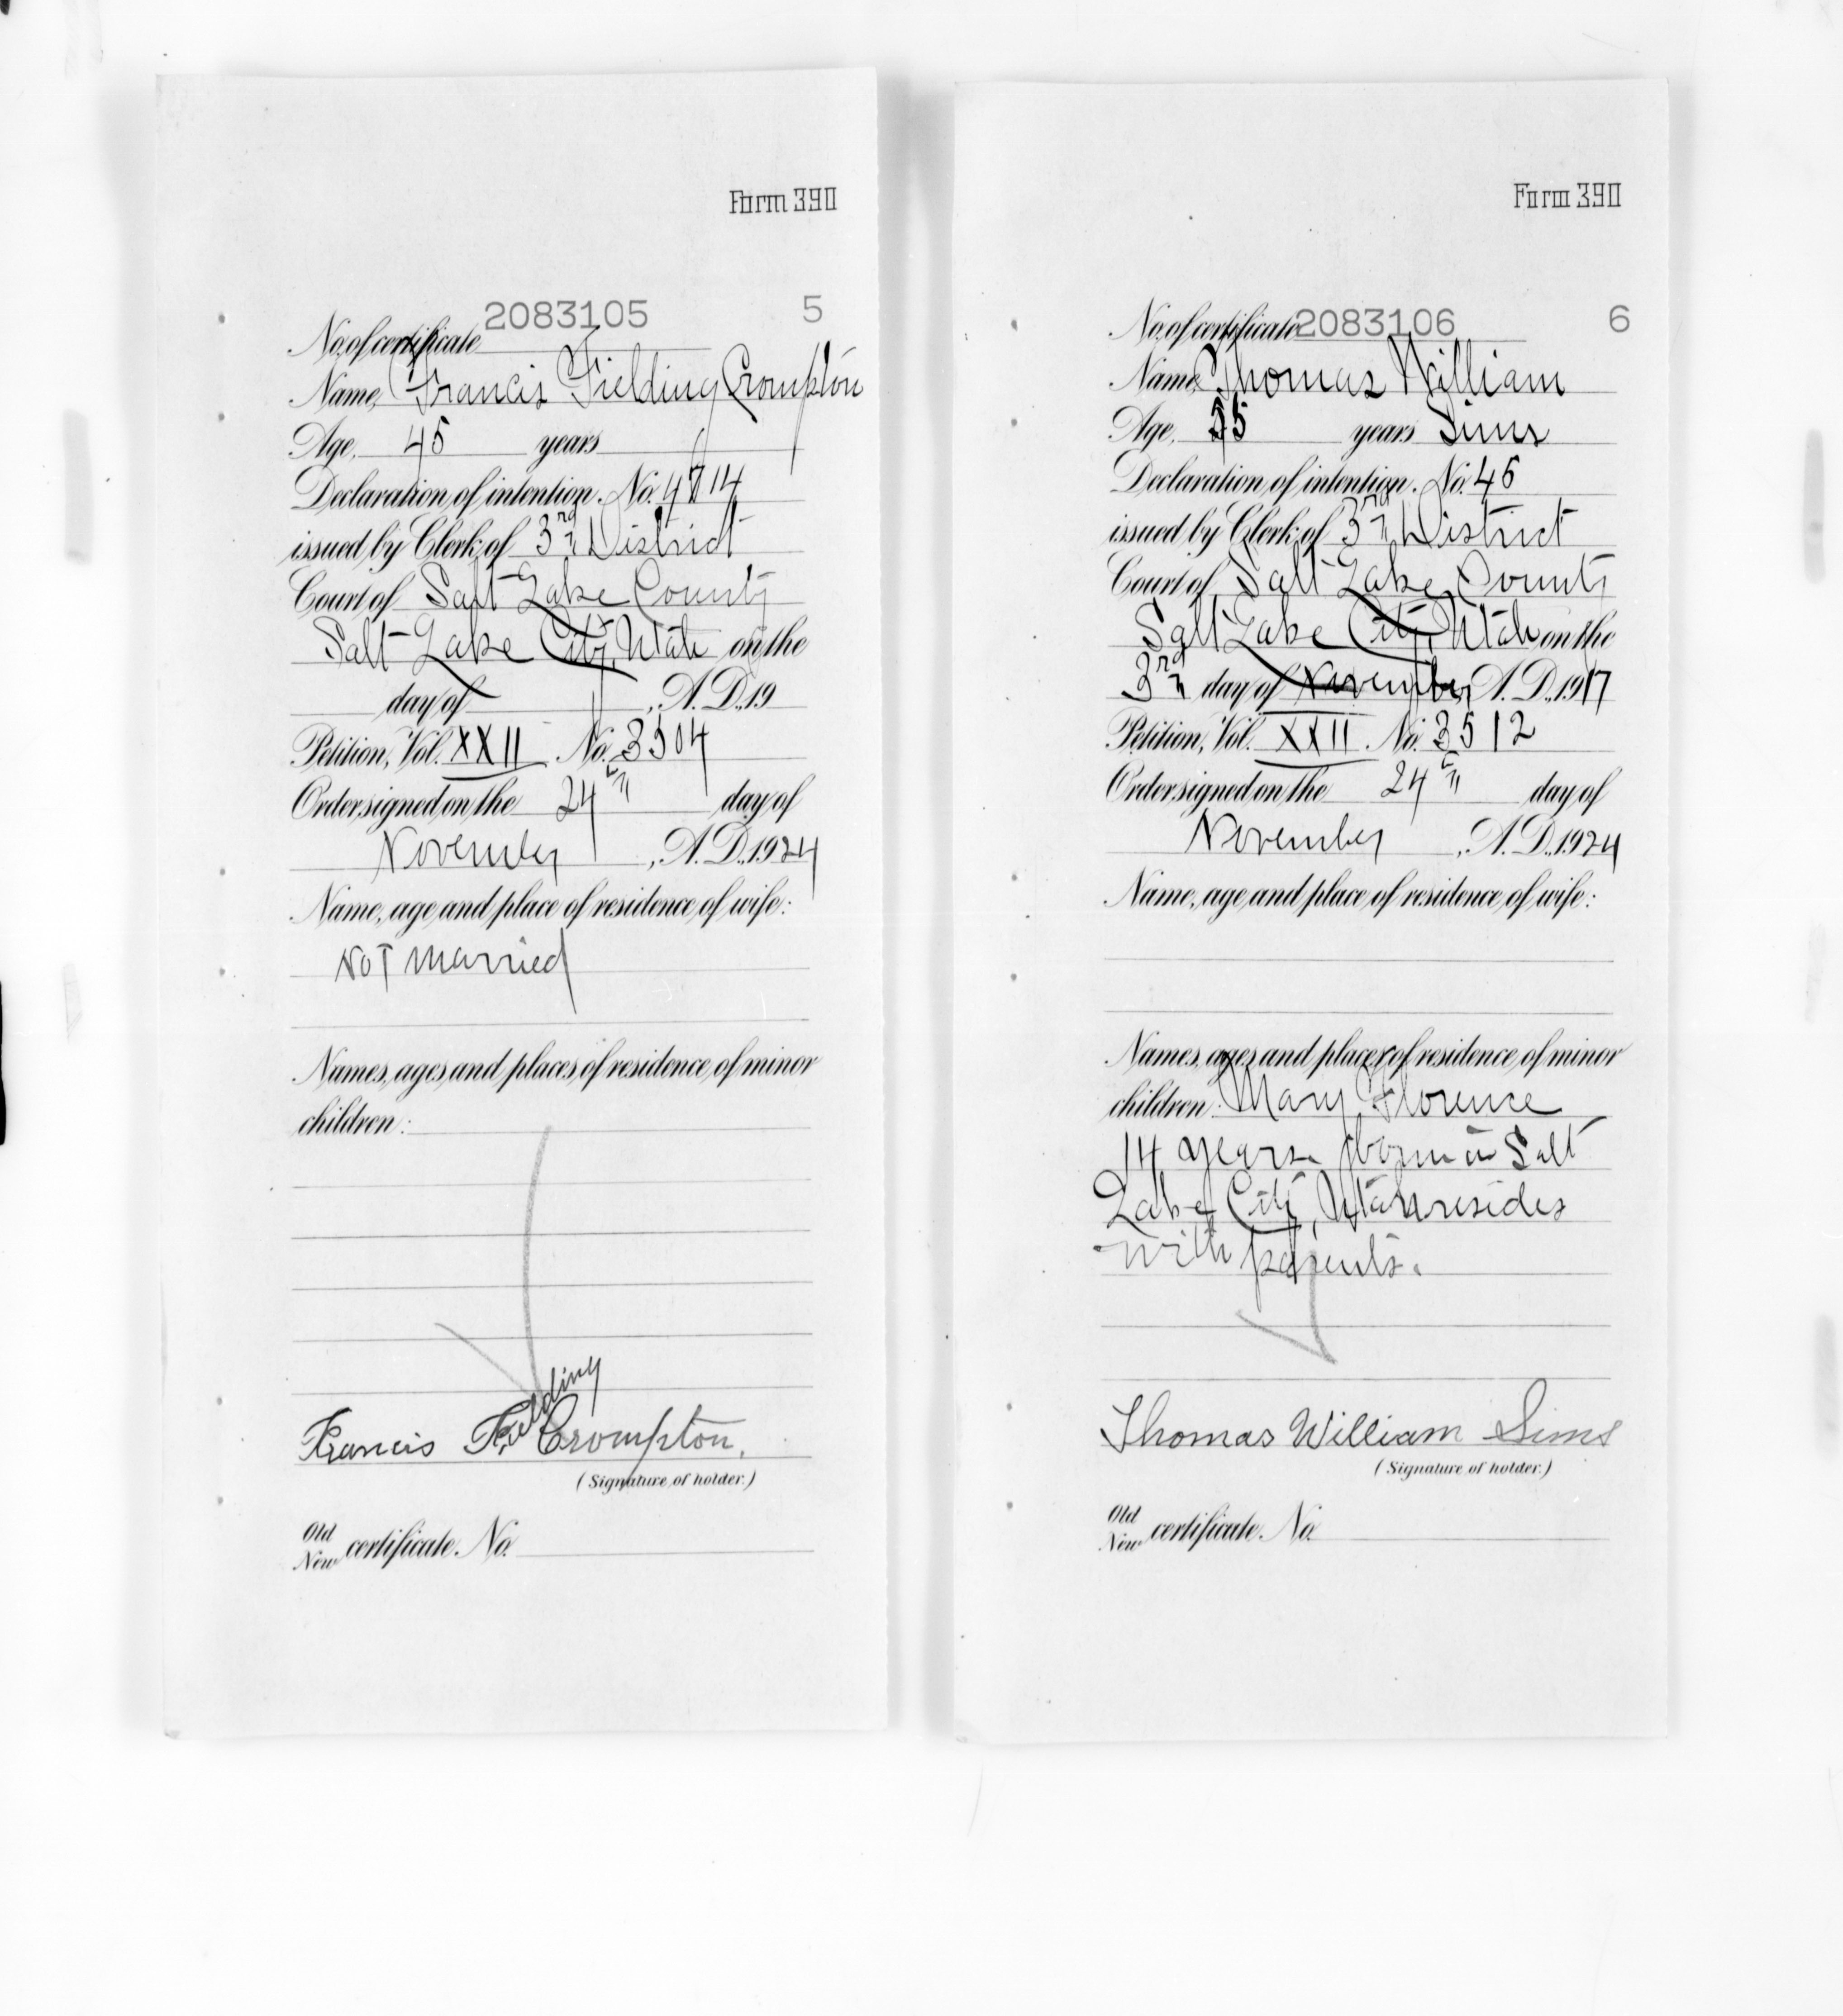 Form 390
2083105 5
No. of certificate
Name, Francis Fielding Crompton
Age, 45 years
Declaration of intention. No. 4714
issued by Clerk of 3rd District
Court of Salt Lake County
Salt Lake City, Utah on the
day of , A. D. 19
Petition, Vol. XXII No. 3504
Order signed on the 24th day of
November , A. D. 1924
Name, age and place of residence of wife:
Not married
Names, ages and places of residence of minor
children:
Francis Fielding Crompton.
(Signature of holder.)
Old
New certificate No.
Form 390
No. of certificate 2083106 6
Name, Thomas William
Age, years Sims
Declaration of intention. No. 45
issued by Clerk of 3rd District
Court of Salt Lake County
Salt Lake City, Utah on the
3rd day of November, A. D. 1917
Petition, Vol. XXII. No. 3512
Order signed on the 24th day of
November , A. D. 1924
Name, age and place of residence of wife:
Names, ages and places of residence of minor
children: Mary Florence
14 years born in Salt
Lake City, Utah resides
with parents.
Thomas William Sims
(Signature of holder.)
Old
New certificate No.